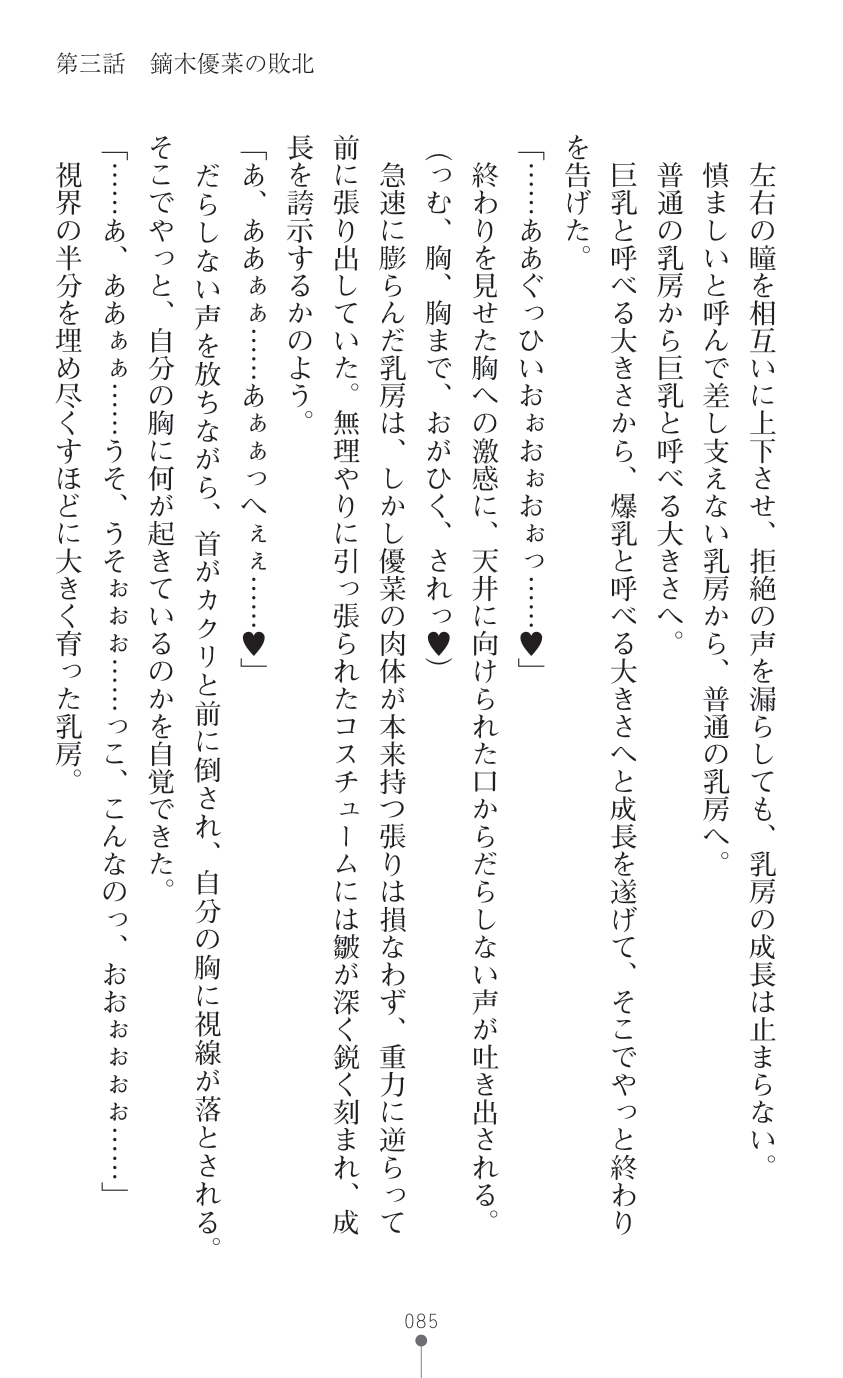 第三話　鏑木優菜の敗北
　左右の瞳を相互いに上下させ、拒絶の声を漏らしても、乳房の成長は止まらない。
　慎ましいと呼んで差し支えない乳房から、普通の乳房へ。
　普通の乳房から巨乳と呼べる大きさへ。
　巨乳と呼べる大きさから、爆乳と呼べる大きさへと成長を遂げて、そこでやっと終わり
を告げた。
「……ああぐっひいおぉおぉおぉっ……♥」
　終わりを見せた胸への激感に、天井に向けられた口からだらしない声が吐き出される。
(っむ、胸、胸まで、おがひく、されっ♥)
　急速に膨らんだ乳房は、しかし優菜の肉体が本来持つ張りは損なわず、重力に逆らって
前に張り出していた。無理やりに引っ張られたコスチュームには皺が深く鋭く刻まれ、成
長を誇示するかのよう。
「あ、ああぁぁ……あぁぁっへぇぇ……♥」
　だらしない声を放ちながら、首がカクリと前に倒され、自分の胸に視線が落とされる。
そこでやっと、自分の胸に何が起きているのかを自覚できた。
「……あ、ああぁぁ……うそ、うそぉぉぉ……っこ、こんなのっ、おおぉぉぉぉ……」
　視界の半分を埋め尽くすほどに大きく育った乳房。
085